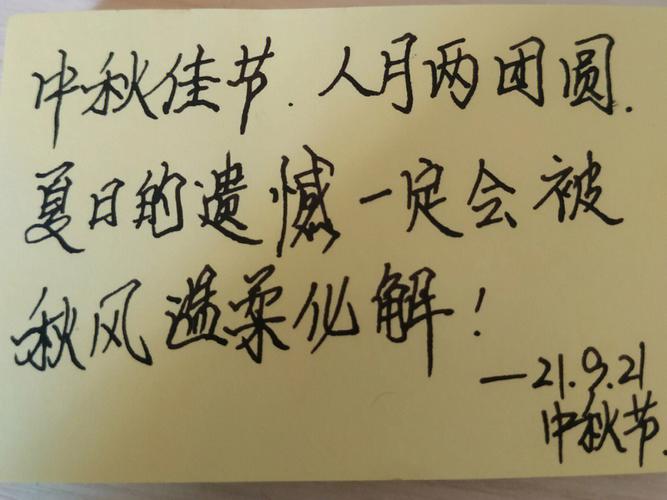 中秋佳节.人月两团圆.
夏日的遗憾一定会被
秋风温柔化解！
—21.9.21
中秋节.